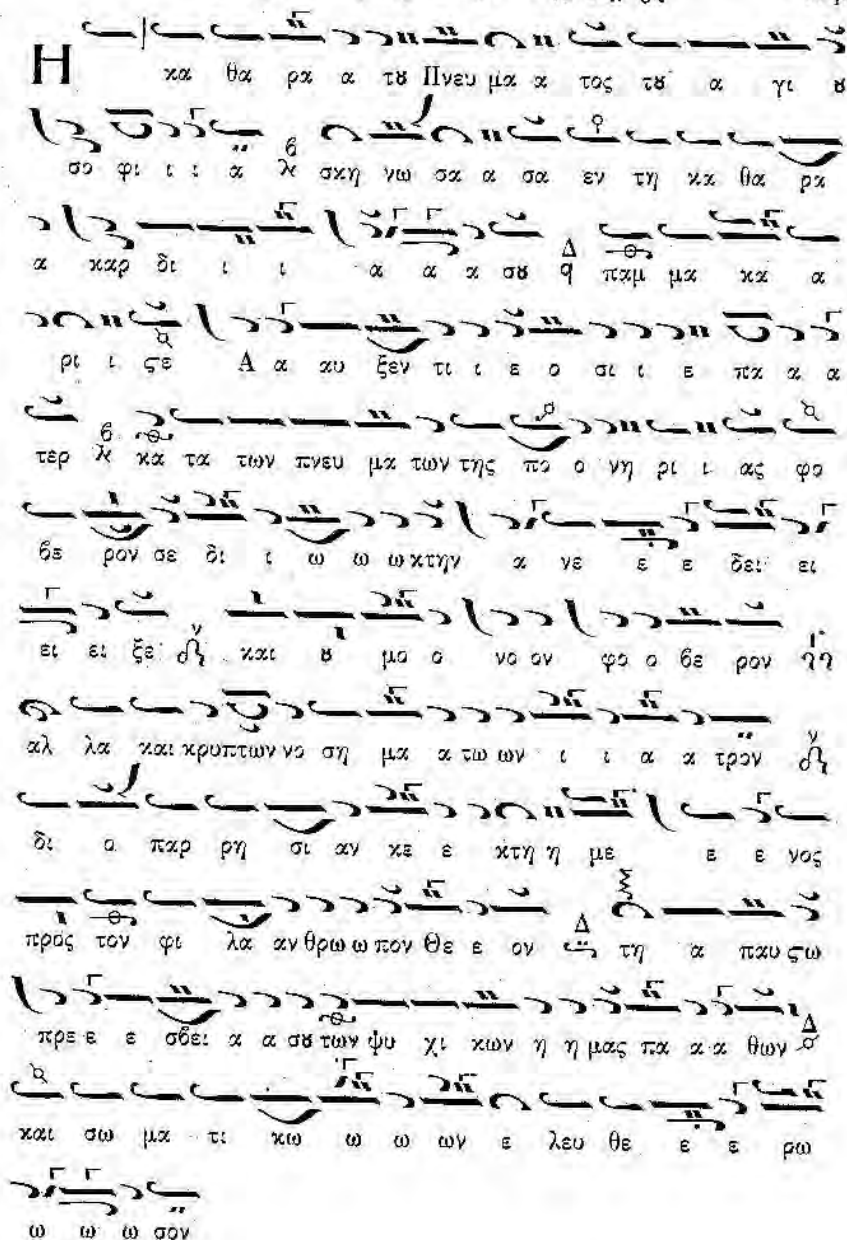 Η κα θα ρα α τȣ Πνευ μα α τος τȣ α γι ȣ
σο φι ι ι α σκη νω σα α σα εν τη κα θα ρα
α καρ δι ι ι α α α σȣ Δ παμ μα κα α
ρι ι ϛε Α α αυ ξεν τι ι ε ο σι ι ε πα α α
τερ κα τα των πνευ μα των της πο ο νη ρι ι ας φο
βε ρον σε δι ι ω ω ω κτην α νε ε ε δει ει
ει ει ξε ν και ȣ μο ο νο ον φο ο βε ρον
αλ λα και κρυπτων νο ση μα α τω ων ι ι α α τρον ν
δι ο παρ ρη σι αν κε ε κτη η με ε ε νος
προς τον φι λα αν θρω ω πον Θε ε ον Δ τη α παυ ϛω
πρε ε ε σβει α α σȣ των ψυ χι κων η η μας πα α α θων Δ
και σω μα τι κω ω ω ων ε λευ θε ε ε ρω
ω ω ω σον